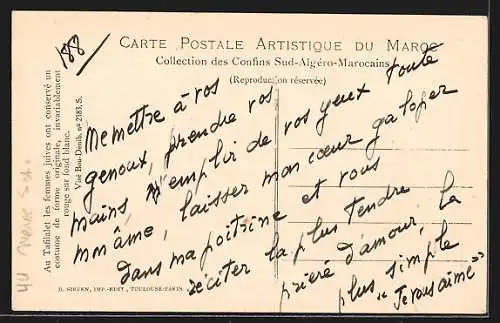 188
CARTE POSTALE ARTISTIQUE DU MAROC
Collection des Confins Sud-Algéro-Marocains
(Reproduction réservée)
Au Tafilalet les femmes juives ont conservé un
costume de forme originale, invariablement
rouge sur fond blanc.
Visé Bou-Denib, no 2183, S.
Me mettre à vos
genoux, prendre vos
mains m'emplir de vos yeux toute
mon âme, laisser mon cœur galoper
dans ma poitrine et vous
réciter la plus tendre
prière d'amour, la
plus simple
"Je vous aime"
D. SIRVEN, IMP.-EDIT., TOULOUSE-PARIS